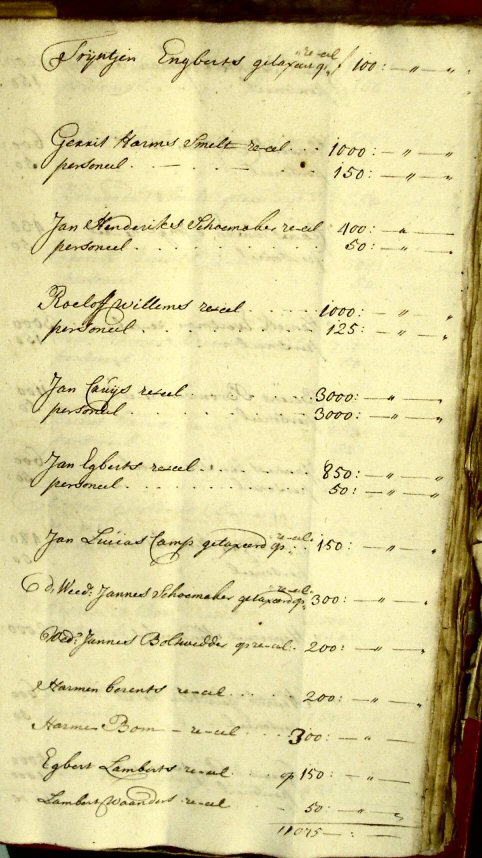 re-eel
Trijntjen Engberts getaxeert op f 100: — „ —
Gerrit Harms Smelt re-eel . . . 1000: — „ — „
personeel . — . — . — . 150: — „ — „
Jan Henderikes Schoemaker re-eel 400: — „ —
personeel . . . . . . 50: — „ — „
Roeloff Willems re-eel . . . . 1000: — „ — „
personeel . . . . . . 125: — „ — „
Jan Cuijs re-eel . . . . 3000: — „ — „
personeel . . . . . . 3000: — „ — „
Jan Egberts re-eel . . . . 850: — „ — „
personeel . . . . . . 50: — „ — „
re-eel
Jan Lucias Camp getaxeerd op . . 150: — „ — „
re-eel
d' Wed: Jannes Schoemaker getaxeerd op 300: — „ — „
Wed: Jannes Boltwedde op re-eel . 200: — „ — „
Harmen berents re-eel . . . . 200: — „ — „
Harmen Bom — re-eel . . . . 300: — „ —
Egbert Lamberts re-eel . . op 150: — „ —
Lambert Waanders re-eel . . . 50: — „ — „
11075 — : —